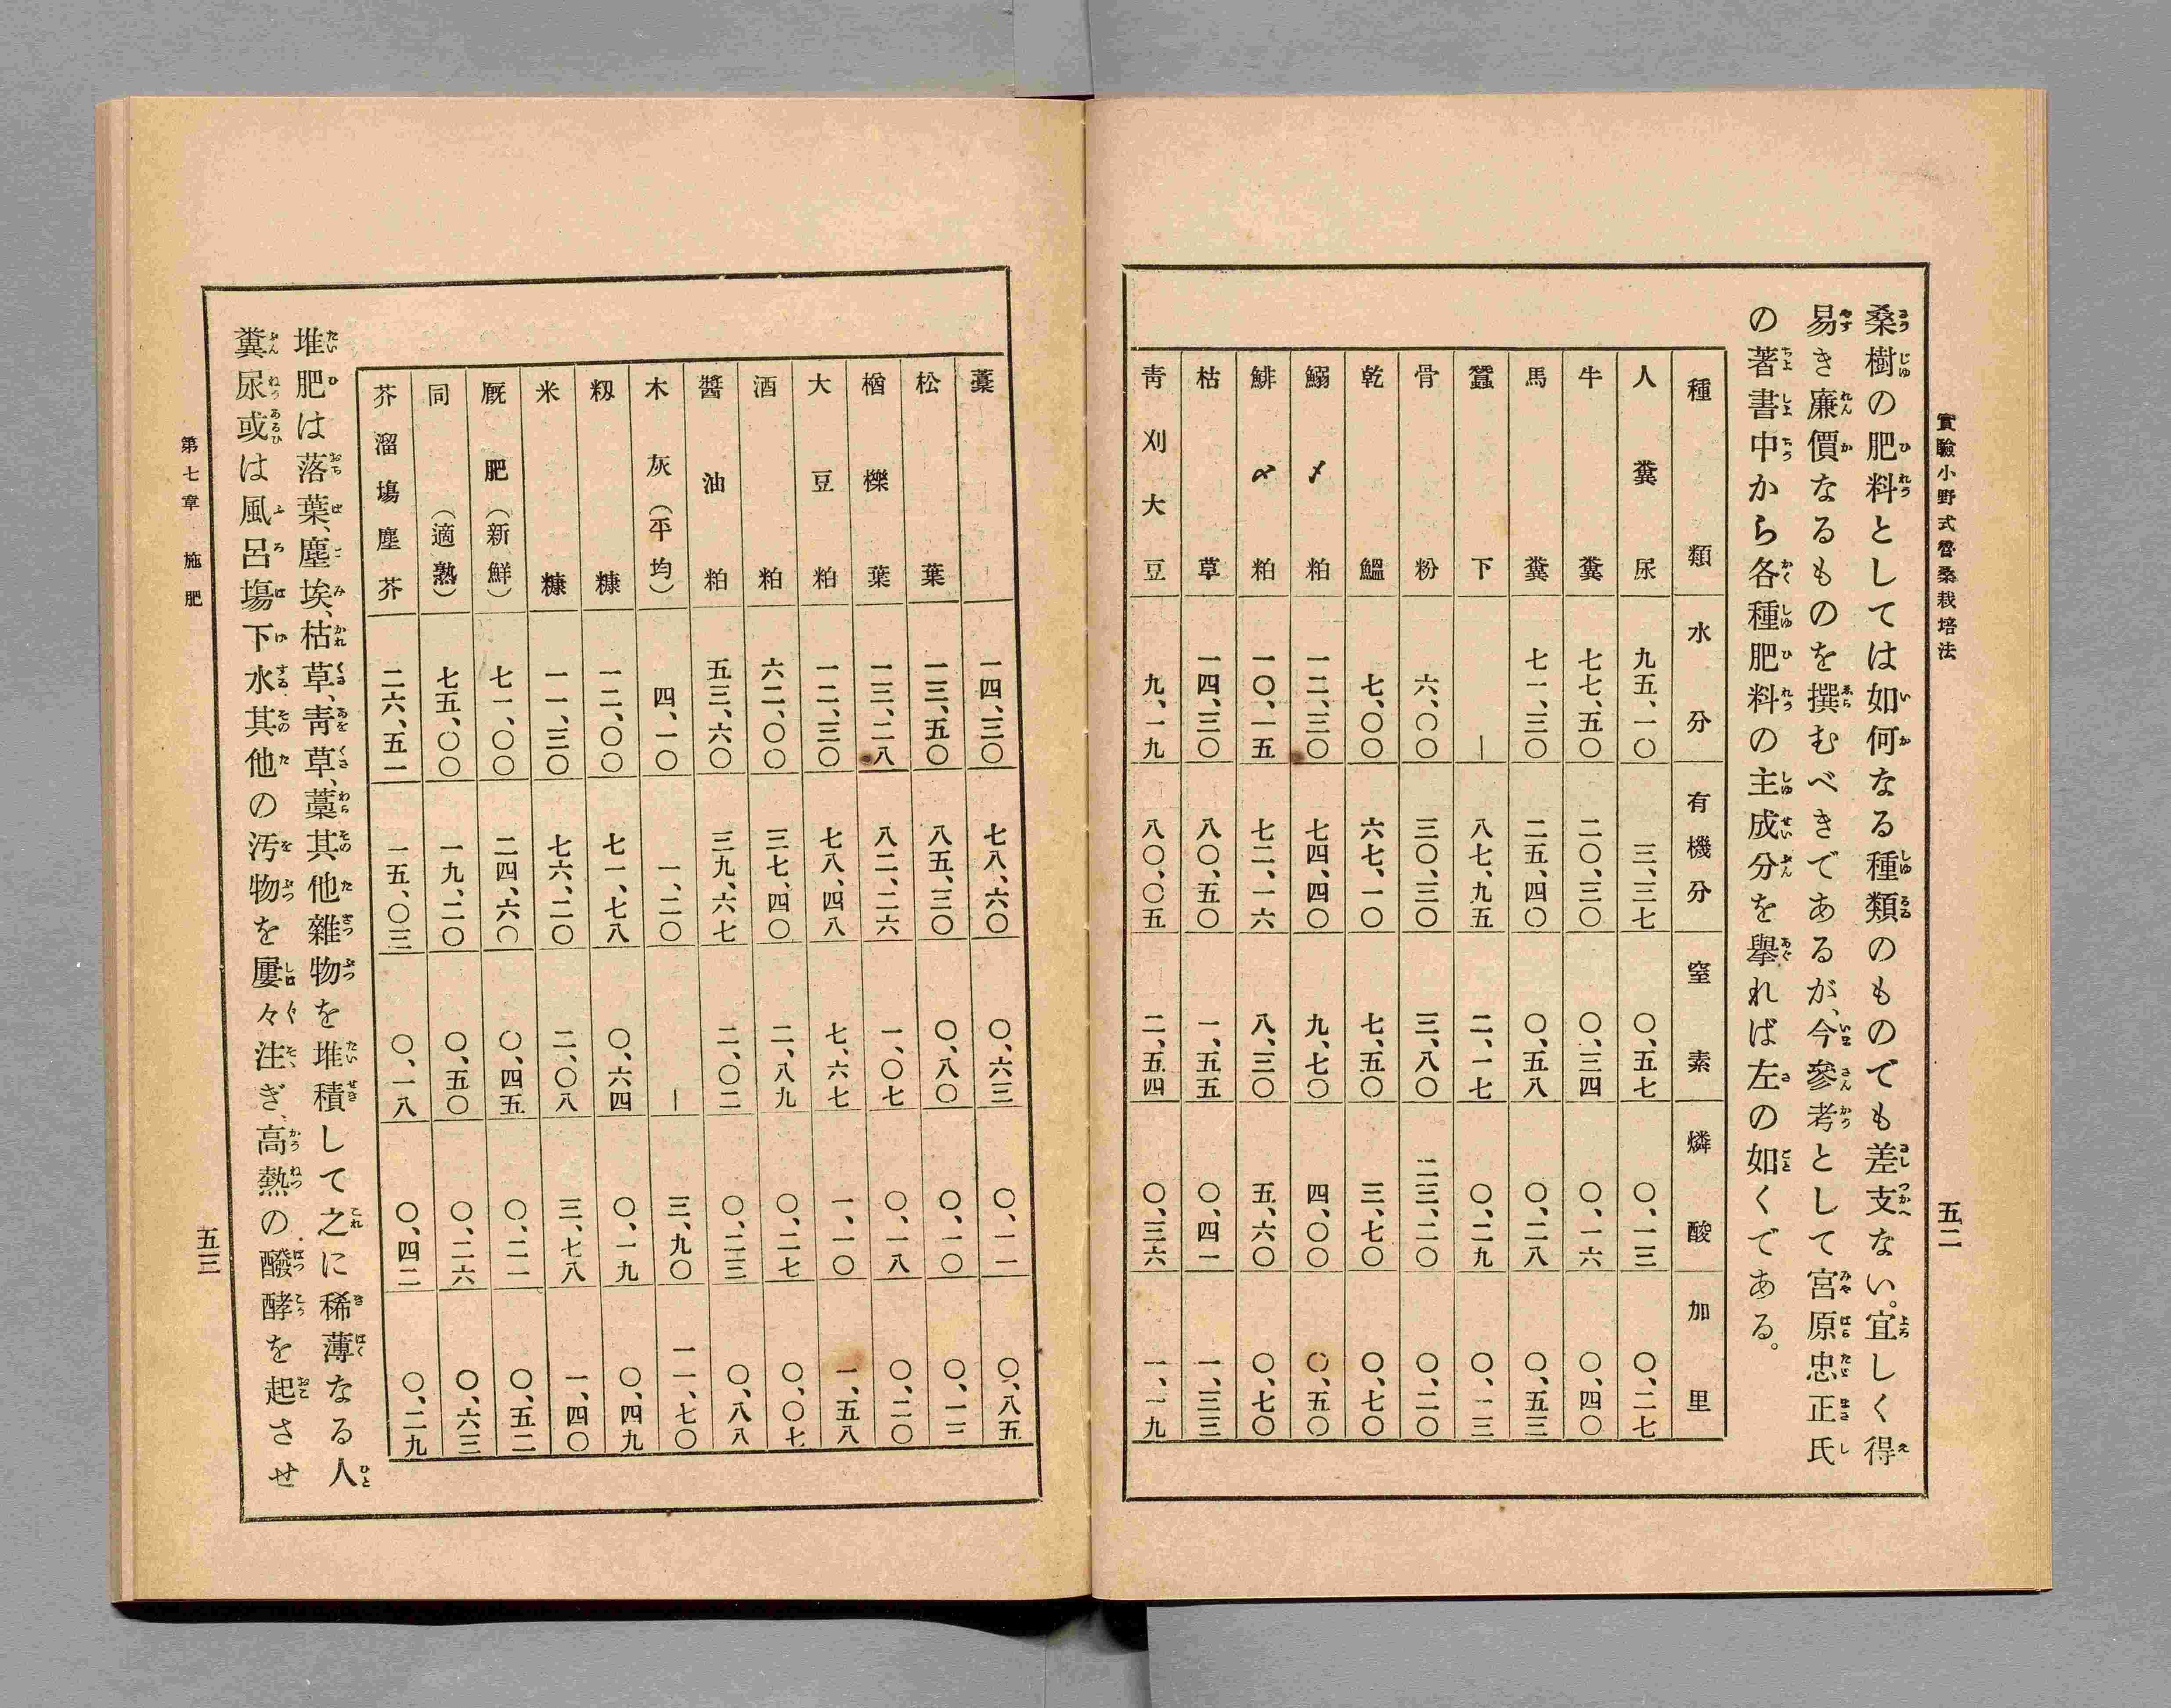 實驗小野式魯桑栽培法
五二
桑樹の肥料としては如何なる種類のものでも差支ない。宜しく得
易き廉價なるものを撰むべきであるが、今參考として宮原忠正氏
の著書中から各種肥料の主成分を擧れば左の如くである。
種類 水分 有機分 窒素 燐酸 加里
人糞尿 九五、一〇 三、三七 〇、五七 〇、一三 〇、二七
牛糞 七七、五〇 二〇、三〇 〇、三四 〇、一六 〇、四〇
馬糞 七一、三〇 二五、四〇 〇、五八 〇、二八 〇、五三
蠶下 ― 八七、九五 二、一七 〇、二九 〇、一三
骨粉 六、〇〇 三〇、三〇 三、八〇 二三、二〇 〇、二〇
乾鰮 七、〇〇 六七、一〇 七、五〇 三、七〇 〇、七〇
鰯〆粕 一二、三〇 七四、四〇 九、七〇 四、〇〇 〇、五〇
鯡〆粕 一〇、一五 七二、一六 八、三〇 五、六〇 〇、七〇
枯草 一四、三〇 八〇、五〇 一、五五 〇、四一 一、三三
靑刈大豆 九、一九 八〇、〇五 二、五四 〇、三六 一、一九
藁 一四、三〇 七八、六〇 〇、六三 〇、一一 〇、八五
松葉 一三、五〇 八五、三〇 〇、八〇 〇、一〇 〇、一三
楢櫟葉 一三、二八 八二、二六 一、〇七 〇、一八 〇、二〇
大豆粕 一二、三〇 七八、四八 七、六七 一、一〇 一、五八
酒粕 六二、〇〇 三七、四〇 二、八九 〇、二七 〇、〇七
醬油粕 五三、六〇 三九、六七 二、〇二 〇、二三 〇、八八
木灰（平均） 四、一〇 一、二〇 ― 三、九〇 一一、七〇
籾糠 一二、〇〇 七一、七八 〇、六四 〇、一九 〇、四九
米糠 一一、三〇 七六、二〇 二、〇八 三、七八 一、四〇
厩肥（新鮮） 七一、〇〇 二四、六〇 〇、四五 〇、二一 〇、五二
同（適熟） 七五、〇〇 一九、二〇 〇、五〇 〇、二六 〇、六三
芥溜塲塵芥 二六、五一 一五、〇三 〇、一八 〇、四二 〇、二九
堆肥は落葉、塵埃、枯草、靑草、藁其他雜物を堆積して之に稀薄なる人
糞尿或は風呂塲下水其他の汚物を屢々注ぎ、高熱の醱酵を起させ
第七章 施肥
五三